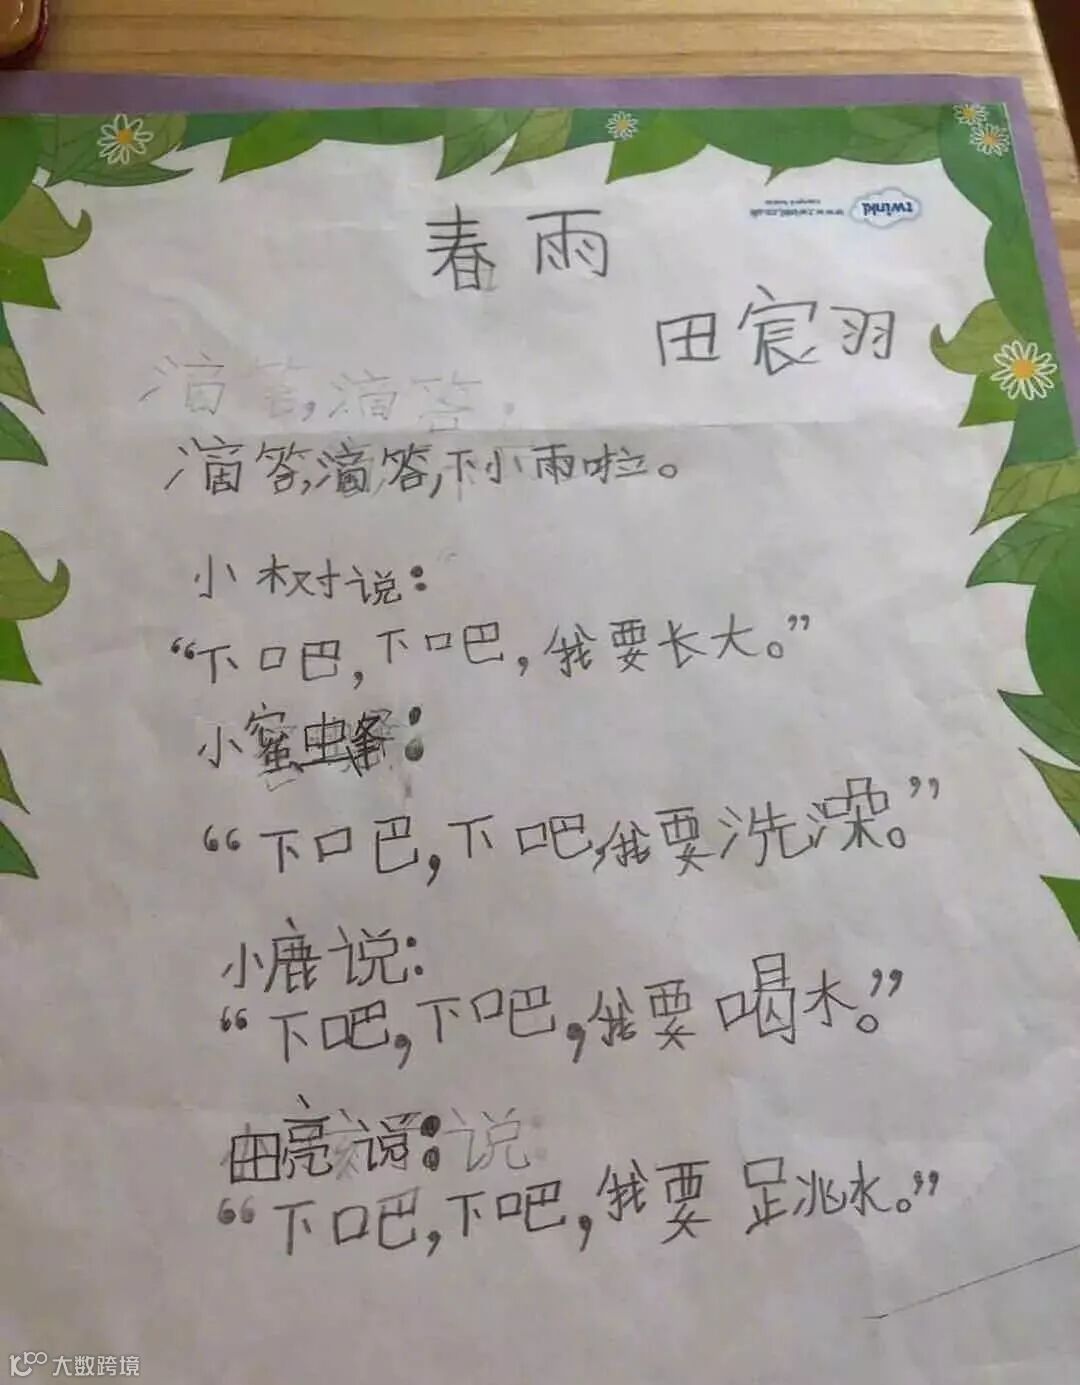 twinkl
www.twinkl.co.uk
春雨
田宸羽
滴答,滴答,
滴答,滴答,下小雨啦。
小树说：
“下吧,下吧,我要长大。”
小蜜蜂：
“下吧,下吧,我要洗澡。”
小鹿说：
“下吧,下吧,我要喝水。”
田亮说：说：
“下吧,下吧,我要跳水。”
大数跨境